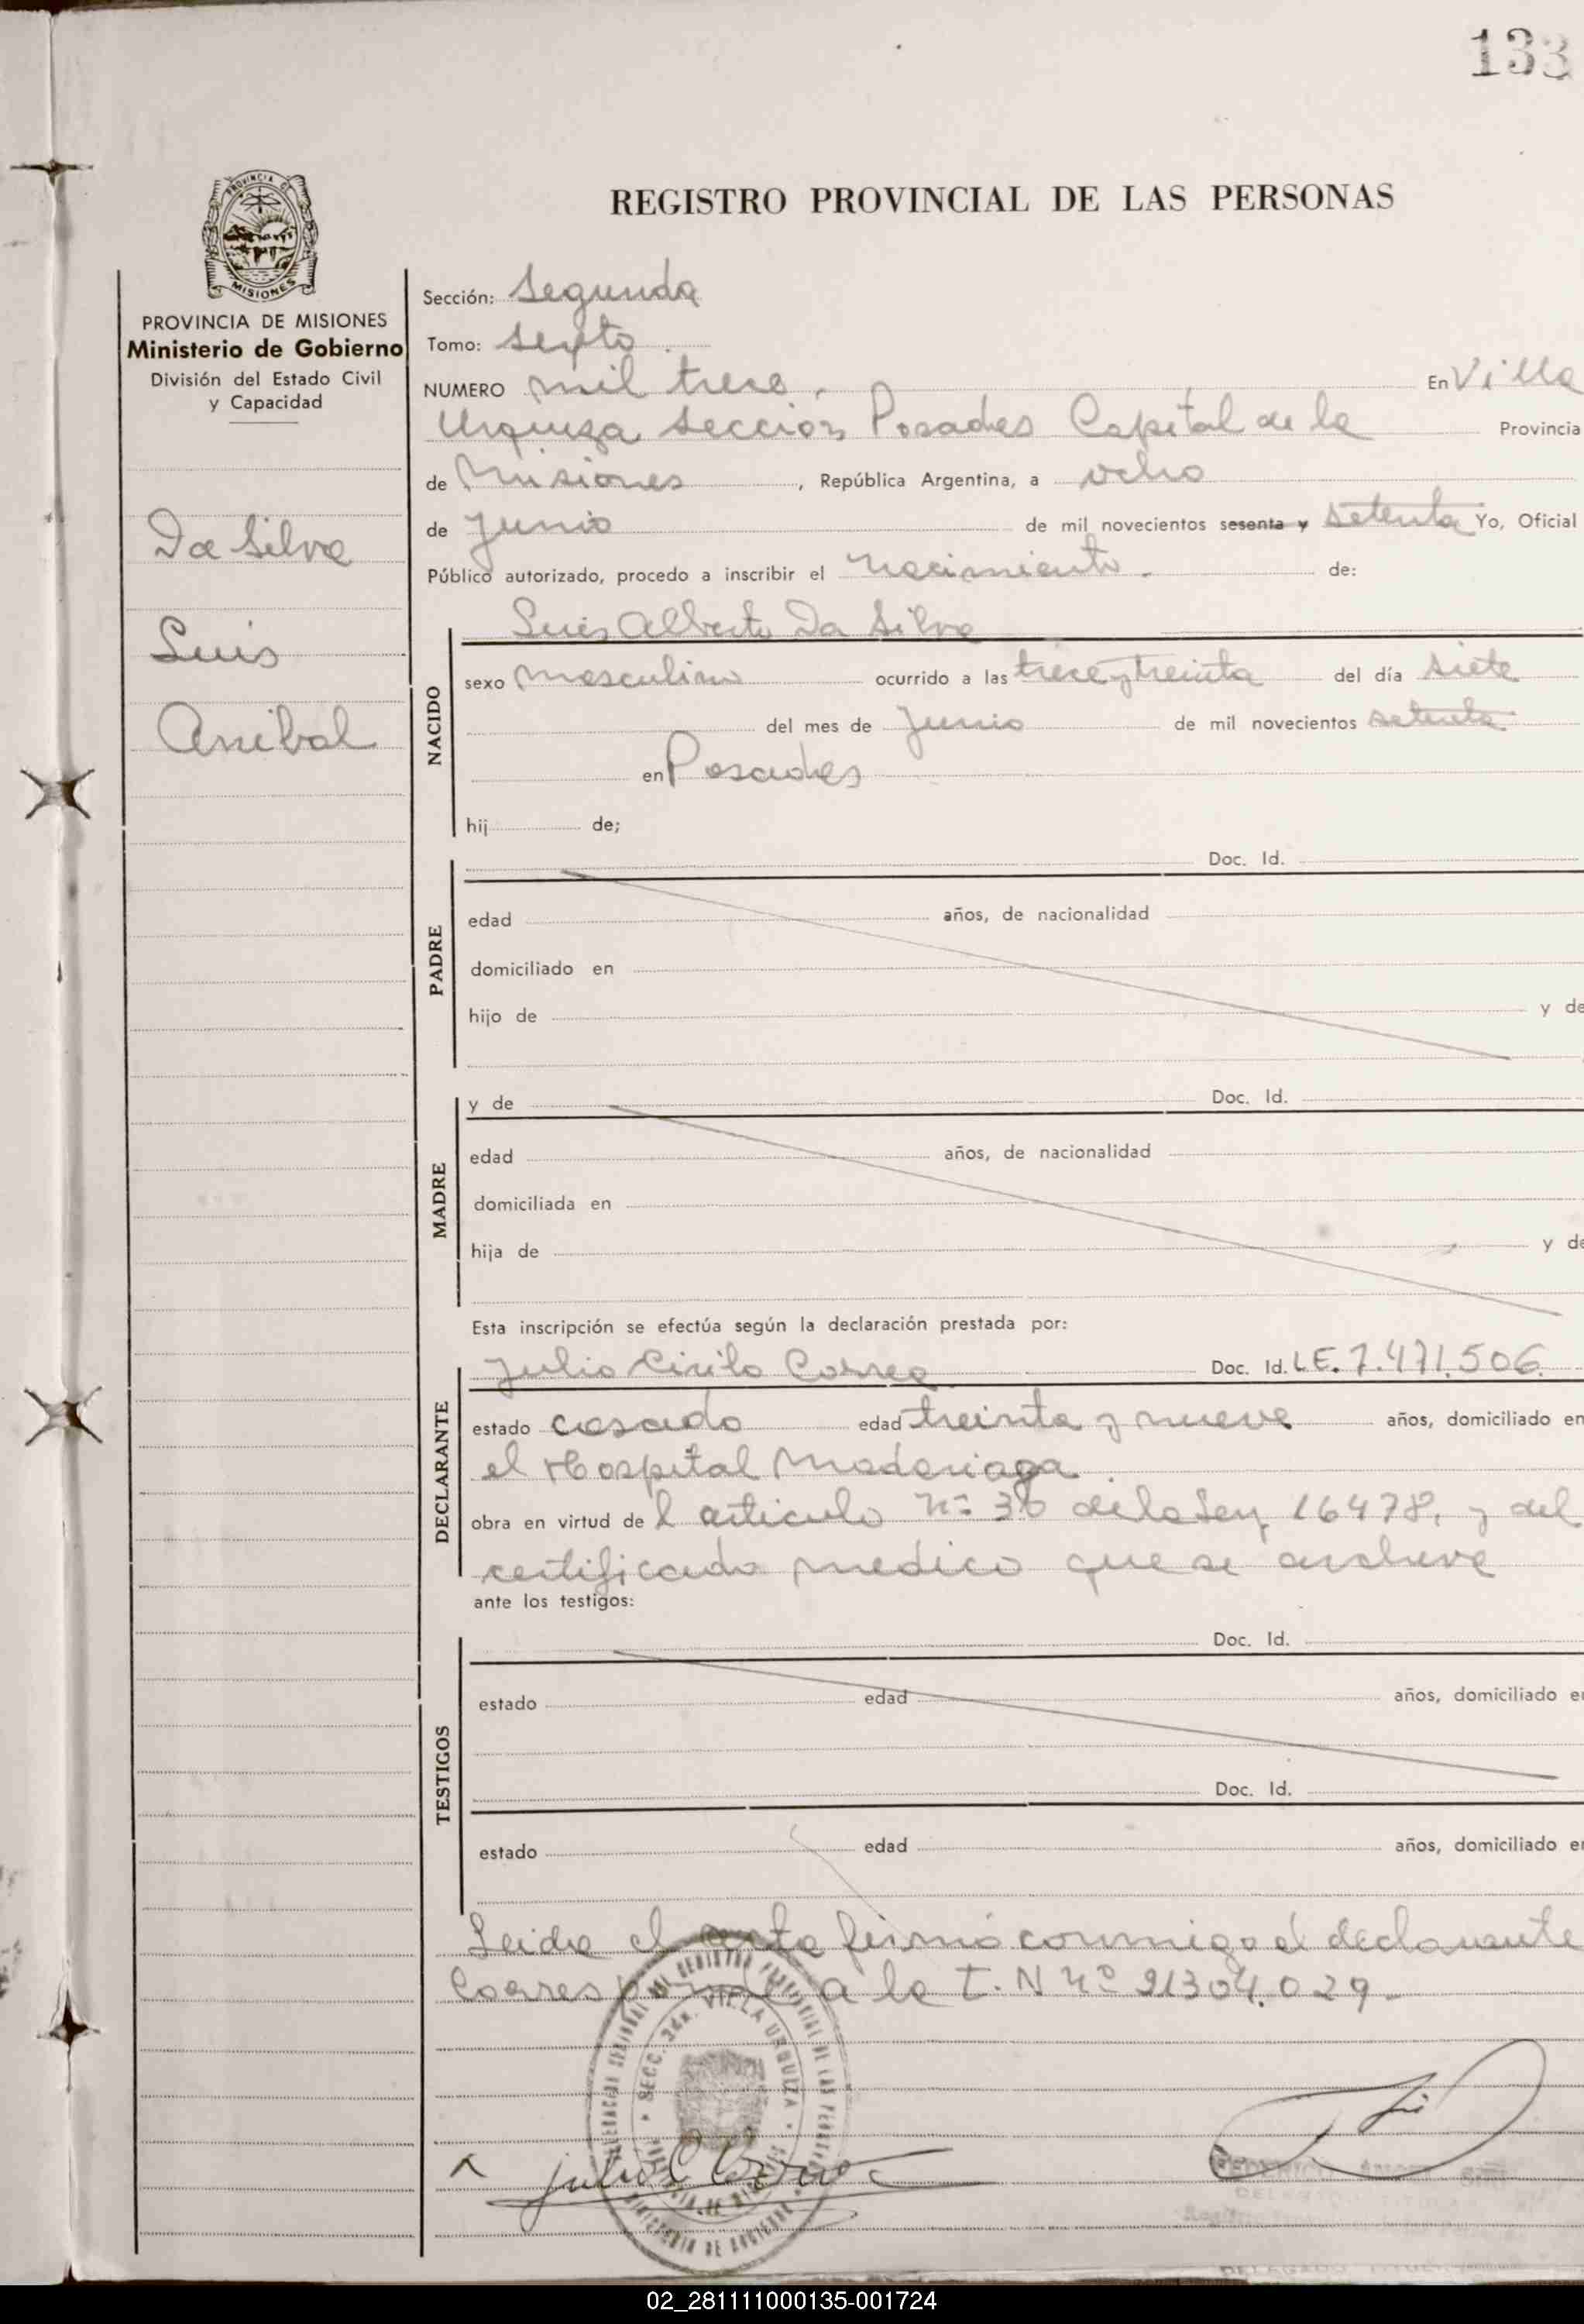 133
PROVINCIA DE
MISIONES
REGISTRO PROVINCIAL DE LAS PERSONAS
PROVINCIA DE MISIONES
Ministerio de Gobierno
División del Estado Civil
y Capacidad
Da Silva
Luis
Anibal
Sección: Segunda
Tomo: sexto
NUMERO mil trece. En Villa
Urquiza seccion Posadas Capital de la Provincia
de Misiones, República Argentina, a ocho
de Junio de mil novecientos sesenta y setenta Yo, Oficial
Público autorizado, procedo a inscribir el nacimiento. de:
NACIDO
Luis Alberto Da Silva
sexo masculino ocurrido a las trece y treinta del día siete
del mes de Junio de mil novecientos setenta
en Posadas
hij de;
PADRE
Doc. Id.
edad años, de nacionalidad
domiciliado en
hijo de y de
MADRE
y de Doc. Id.
edad años, de nacionalidad
domiciliada en
hija de y de
Esta inscripción se efectúa según la declaración prestada por:
DECLARANTE
Julio Cirilo Correa Doc. Id. L.E. 7.471.506
estado casado edad treinta y nueve años, domiciliado en
el Hospital Madariaga.
obra en virtud de l articulo Nº 30 de la Ley 16478, y del
certificado medico que se archiva
ante los testigos:
TESTIGOS
Doc. Id.
estado edad años, domiciliado en
Doc. Id.
estado edad años, domiciliado en
Leida el acta firmó conmigo el declarante
Corresponde a la T. N nº 21304.029-
SECC. 2da. VILLA URQUIZA
02_281111000135-001724